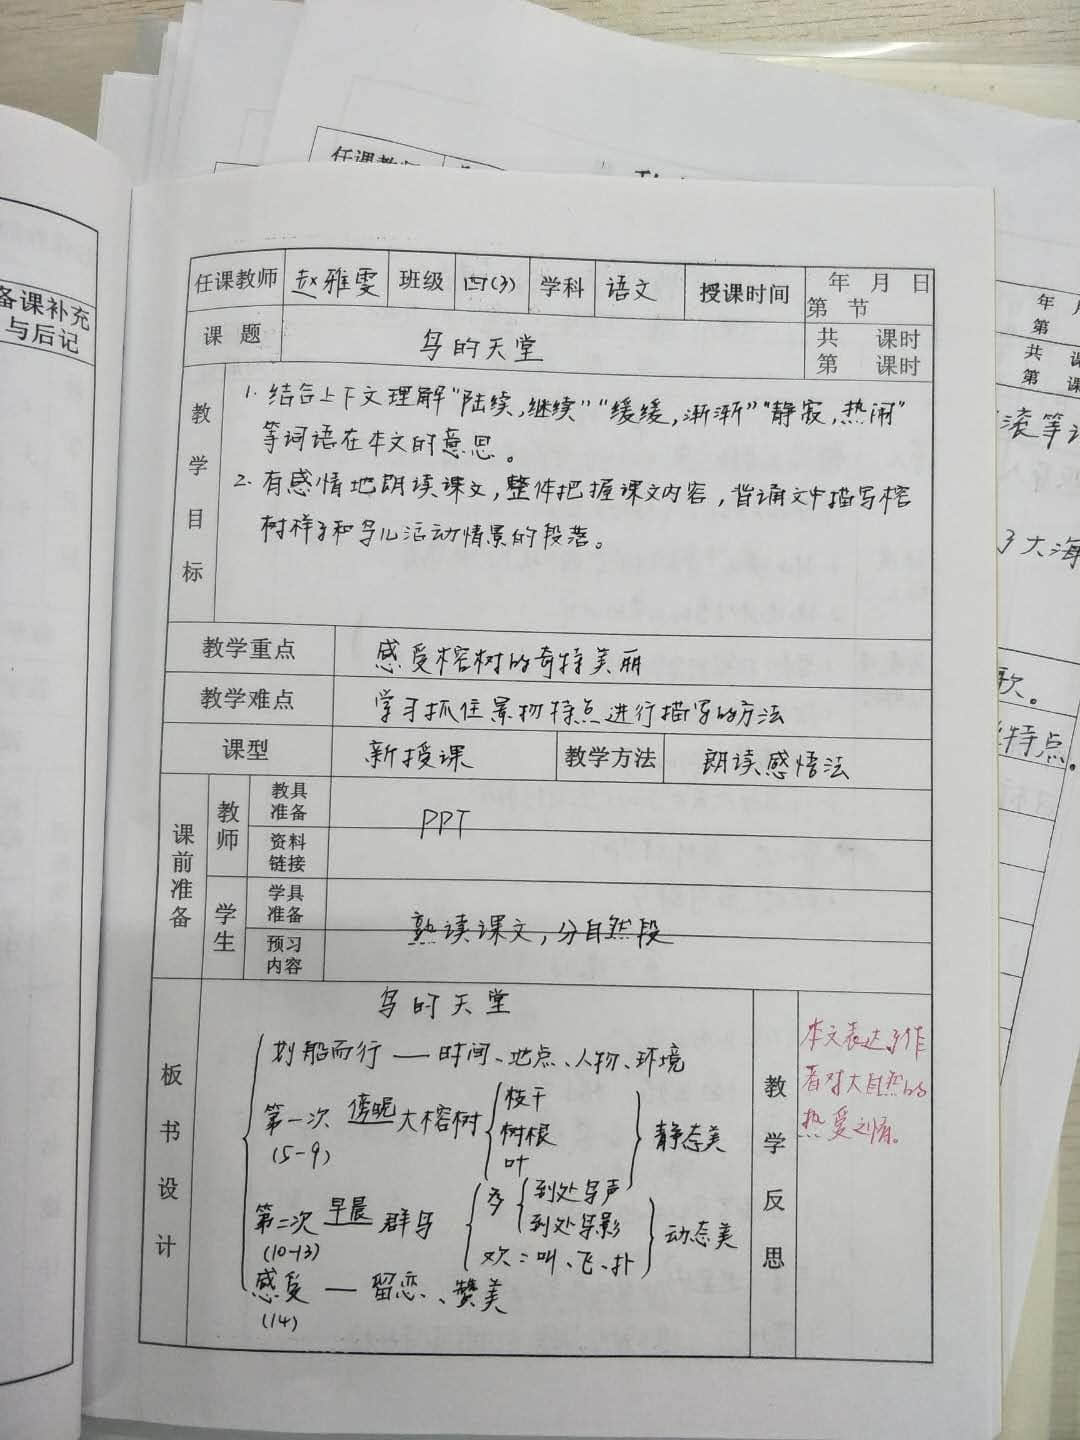 任课教
备课补充
与后记
任课教师 赵雅雯 班级 四(3) 学科 语文 授课时间 年 月 日
第 节
课 题 鸟的天堂 共 课时
第 课时
教学目标
1. 结合上下文理解"陆续,继续""缓缓,渐渐""静寂,热闹"
等词语在本文的意思。
2. 有感情地朗读课文,整体把握课文内容,背诵文中描写榕
树样子和鸟儿活动情景的段落。
教学重点 感受榕树的奇特美丽
教学难点 学习抓住景物特点进行描写的方法
课型 新授课 教学方法 朗读感悟法
课前准备
教师
教具
准备
PPT
资料
链接
学生
学具
准备
熟读课文,分自然段
预习
内容
板书设计
鸟的天堂
划船而行 — 时间、地点、人物、环境
第一次 傍晚 大榕树 枝干 树根 叶 静态美
(5-9)
第二次 早晨 群鸟 多 到处鸟声 到处鸟影 动态美
(10-13) 欢:叫、飞、扑
感受 — 留恋、赞美
(14)
教学反思
本文表达了作
者对大自然的
热爱之情。
年 月
第
共 课
第 课
滚等
了大海
歌。
特点。